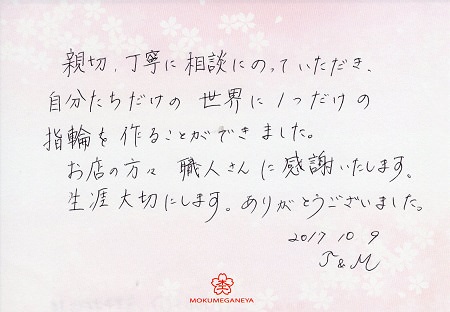 親切、丁寧に相談にのっていただき、
自分たちだけの 世界に1つだけの
指輪を作ることができました。
お店の方々 職人さんに感謝いたします。
生涯大切にします。ありがとうございました。
2017 10 9
J & M
MOKUMEGANEYA